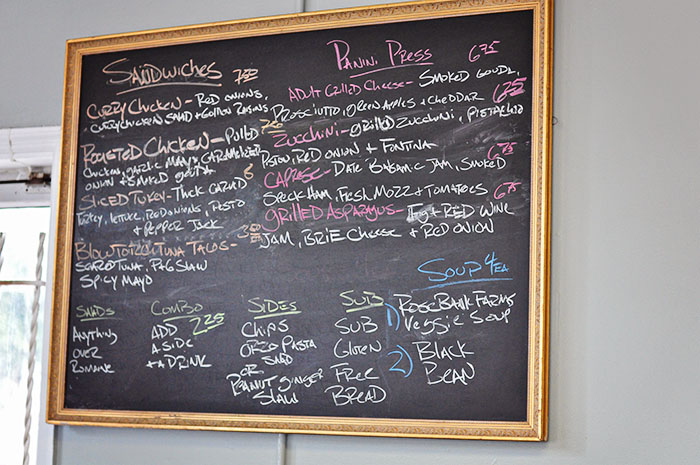 Sandwiches
Curry Chicken - Red onions,
curry chicken salad + Golden Raisins
Roasted Chicken - Pulled
Chicken, garlic Mayo, caramelized
onion + smoked gouda
Sliced Turkey - Thick carved 8
Turkey, lettuce, Red onions, Pesto
+ Pepper Jack
Blowtorch Tuna Tacos -
Seared Tuna, Slaw
Spicy Mayo
Panini Press 675
Adult Grilled Cheese - Smoked gouda,
Prosciutto, green Apples + Cheddar
Zucchini - grilled Zucchini, Pistachio
Pesto, Red onion + Fontina
Caprese - Date Balsamic Jam, Smoked 675
Speck Ham, Fresh Mozz + Tomatoes
Grilled Asparagus - Fig + Red Wine 675
Jam, Brie Cheese + Red onion
Soup 4 EA
1) Rose Bank Farms
Veggie Soup
2) Black
Bean
Salads
Anything
over
Romaine
Combo
Add 225
A Side
+ A Drink
Sides
Chips
Orzo Pasta
Salad
or
Peanut Ginger
Slaw
Sub
Sub
Gluten
Free
Bread